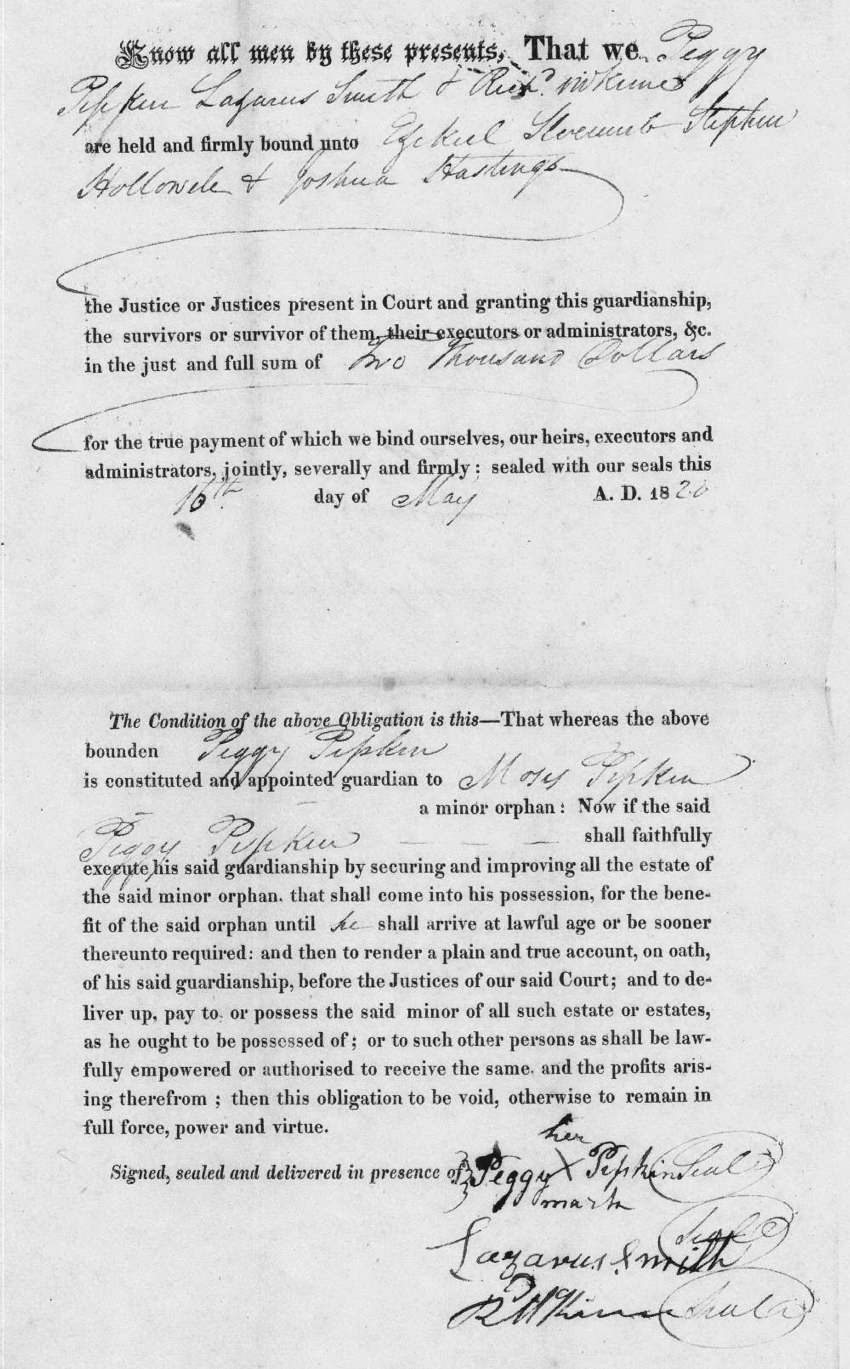 Know all men by these presents, That we Peggy
Pipkin Lazarus Smith & Richd. McKinne
are held and firmly bound unto Ezekiel Slocumb Stephen
Hollowele & Joshua Hastings
the Justice or Justices present in Court and granting this guardianship,
the survivors or survivor of them, their executors or administrators, &c.
in the just and full sum of Two Thousand Dollars
for the true payment of which we bind ourselves, our heirs, executors and
administrators, jointly, severally and firmly; sealed with our seals this
16th day of May A. D. 1820
The Condition of the above Obligation is this—That whereas the above
bounden Peggy Pipkin
is constituted and appointed guardian to Moses Pipkin
a minor orphan: Now if the said
Peggy Pipkin — — — shall faithfully
execute his said guardianship by securing and improving all the estate of
the said minor orphan. that shall come into his possession, for the bene-
fit of the said orphan until he shall arrive at lawful age or be sooner
thereunto required: and then to render a plain and true account, on oath,
of his said guardianship, before the Justices of our said Court; and to de-
liver up, pay to. or possess the said minor of all such estate or estates,
as he ought to be possessed of; or to such other persons as shall be law-
fully empowered or authorised to receive the same. and the profits aris-
ing therefrom ; then this obligation to be void, otherwise to remain in
full force, power and virtue.
her
Signed, sealed and delivered in presence of Peggy X Pipkin Seal
mark
Seal
Lazarus Smith
R McKinne Seal